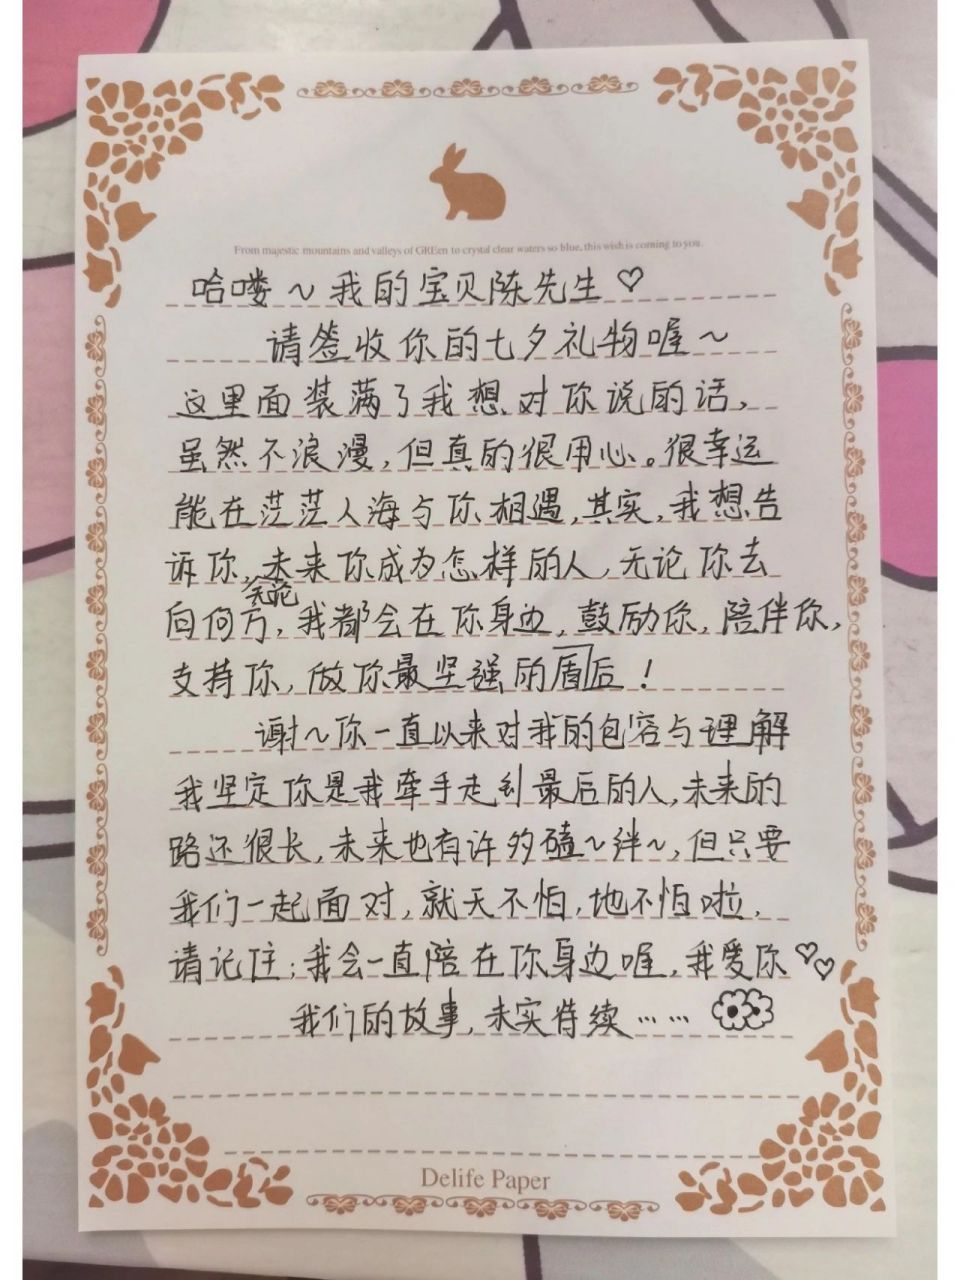 From majestic mountains and valleys of GREen to crystal clear waters so blue, this wish is coming to you.
哈喽～我的宝贝陈先生♡
请签收你的七夕礼物喔～
这里面装满了我想对你说的话，
虽然不浪漫，但真的很用心。很幸运
能在茫茫人海与你相遇，其实，我想告
诉你，未来你成为怎样的人，无论你去
向何方，无论我都会在你身边，鼓励你，陪伴你，
支持你，做你最坚强的盾后！
谢～你一直以来对我的包容与理解
我坚定你是我牵手走到最后的人，未来的
路还很长，未来也有许多磕～绊～，但只要
我们一起面对，就天不怕，地不怕啦，
请记住；我会一直陪在你身边喔，我爱你♡♡
我们的故事，未完待续……
Delife Paper